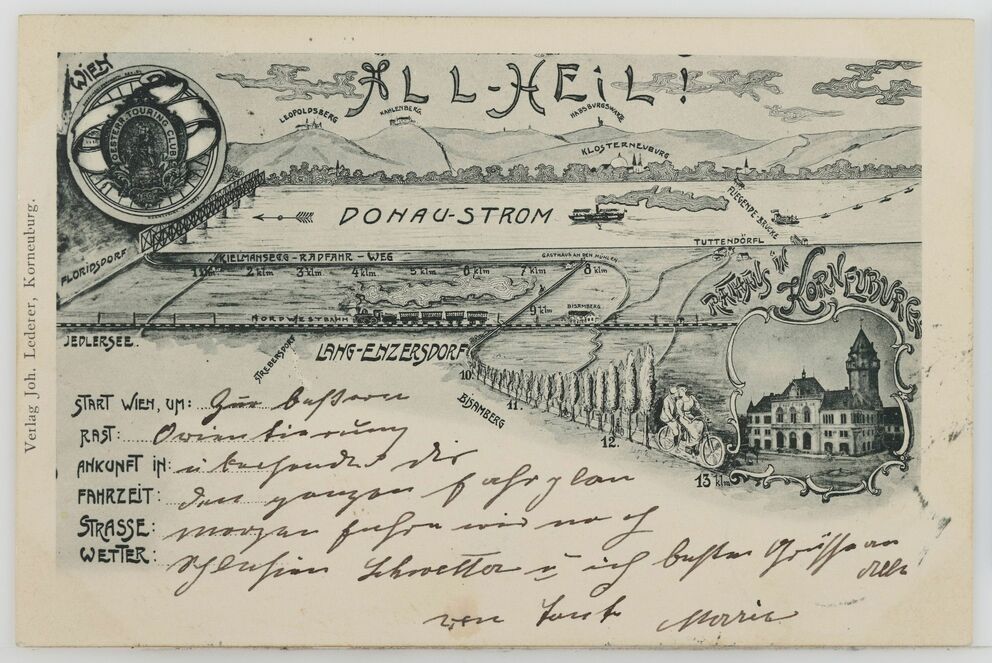 WIEN
OESTERR. TOURING CLUB
ALL-HEIL!
LEOPOLDSBERG
KAHLENBERG
HABSBURGSWARE
KLOSTERNEUBURG
DONAU-STROM
FLIEGENDE-BRÜCKE
TUTTENDÖRFL
FLORIDSDORF
KIELMANSEGG-RADFAHR-WEG
GASTHAUS AN DEN MÜHLEN
1 klm 2 klm 3 klm 4 klm 5 klm 6 klm 7 klm 8 klm
9 klm
BISAMBERG
NORDWESTBAHN
JEDLERSEE.
STREBERSDORF
LANG-ENZERSDORF
10.
11.
BISAMBERG
12.
13 klm
RATHAUS IN KORNEUBURG
Verlag Joh. Lederer, Korneuburg.
START WIEN, UM: Zur bessern
RAST: Orientierung
ANKUNFT IN: übersende dir
FAHRZEIT: den ganzen Fahrplan
STRASSE: morgen fahren wir nach
WETTER: Schlesien u ich besten Grüsse an
alle
von Marie